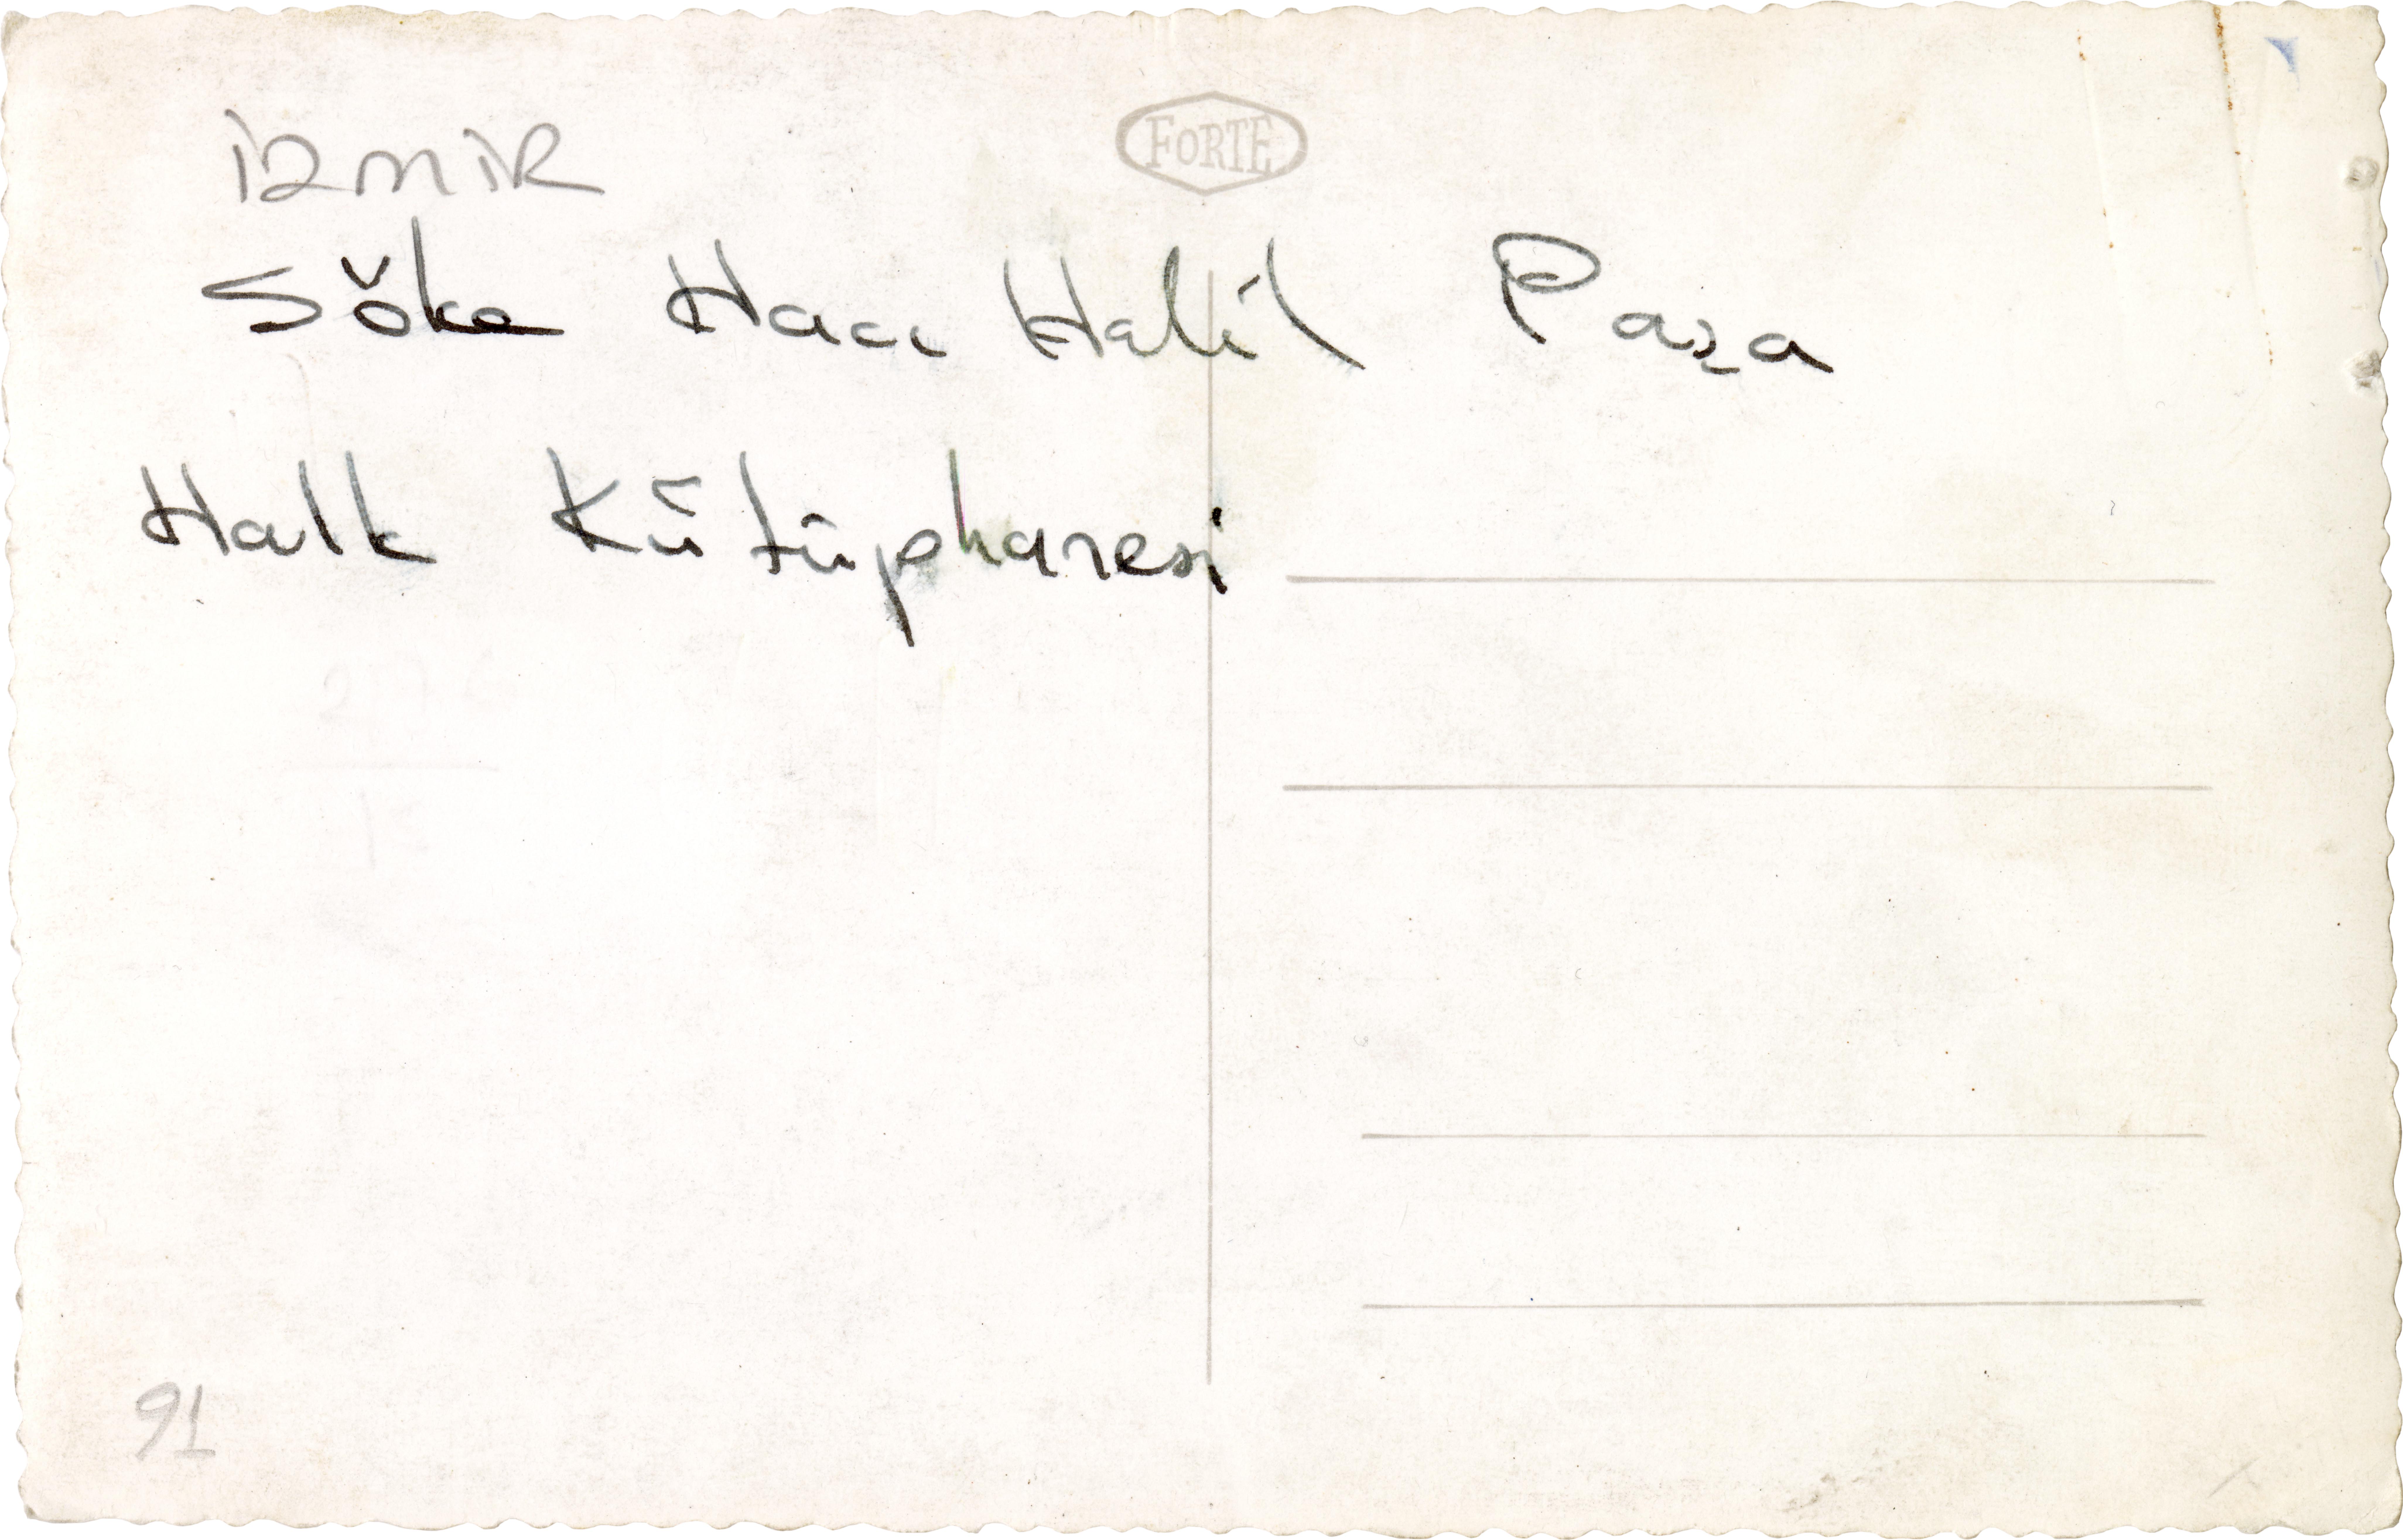 İZMİR
FORTE
Söke Hacı Halil Paşa
Halk Kütüphanesi
91